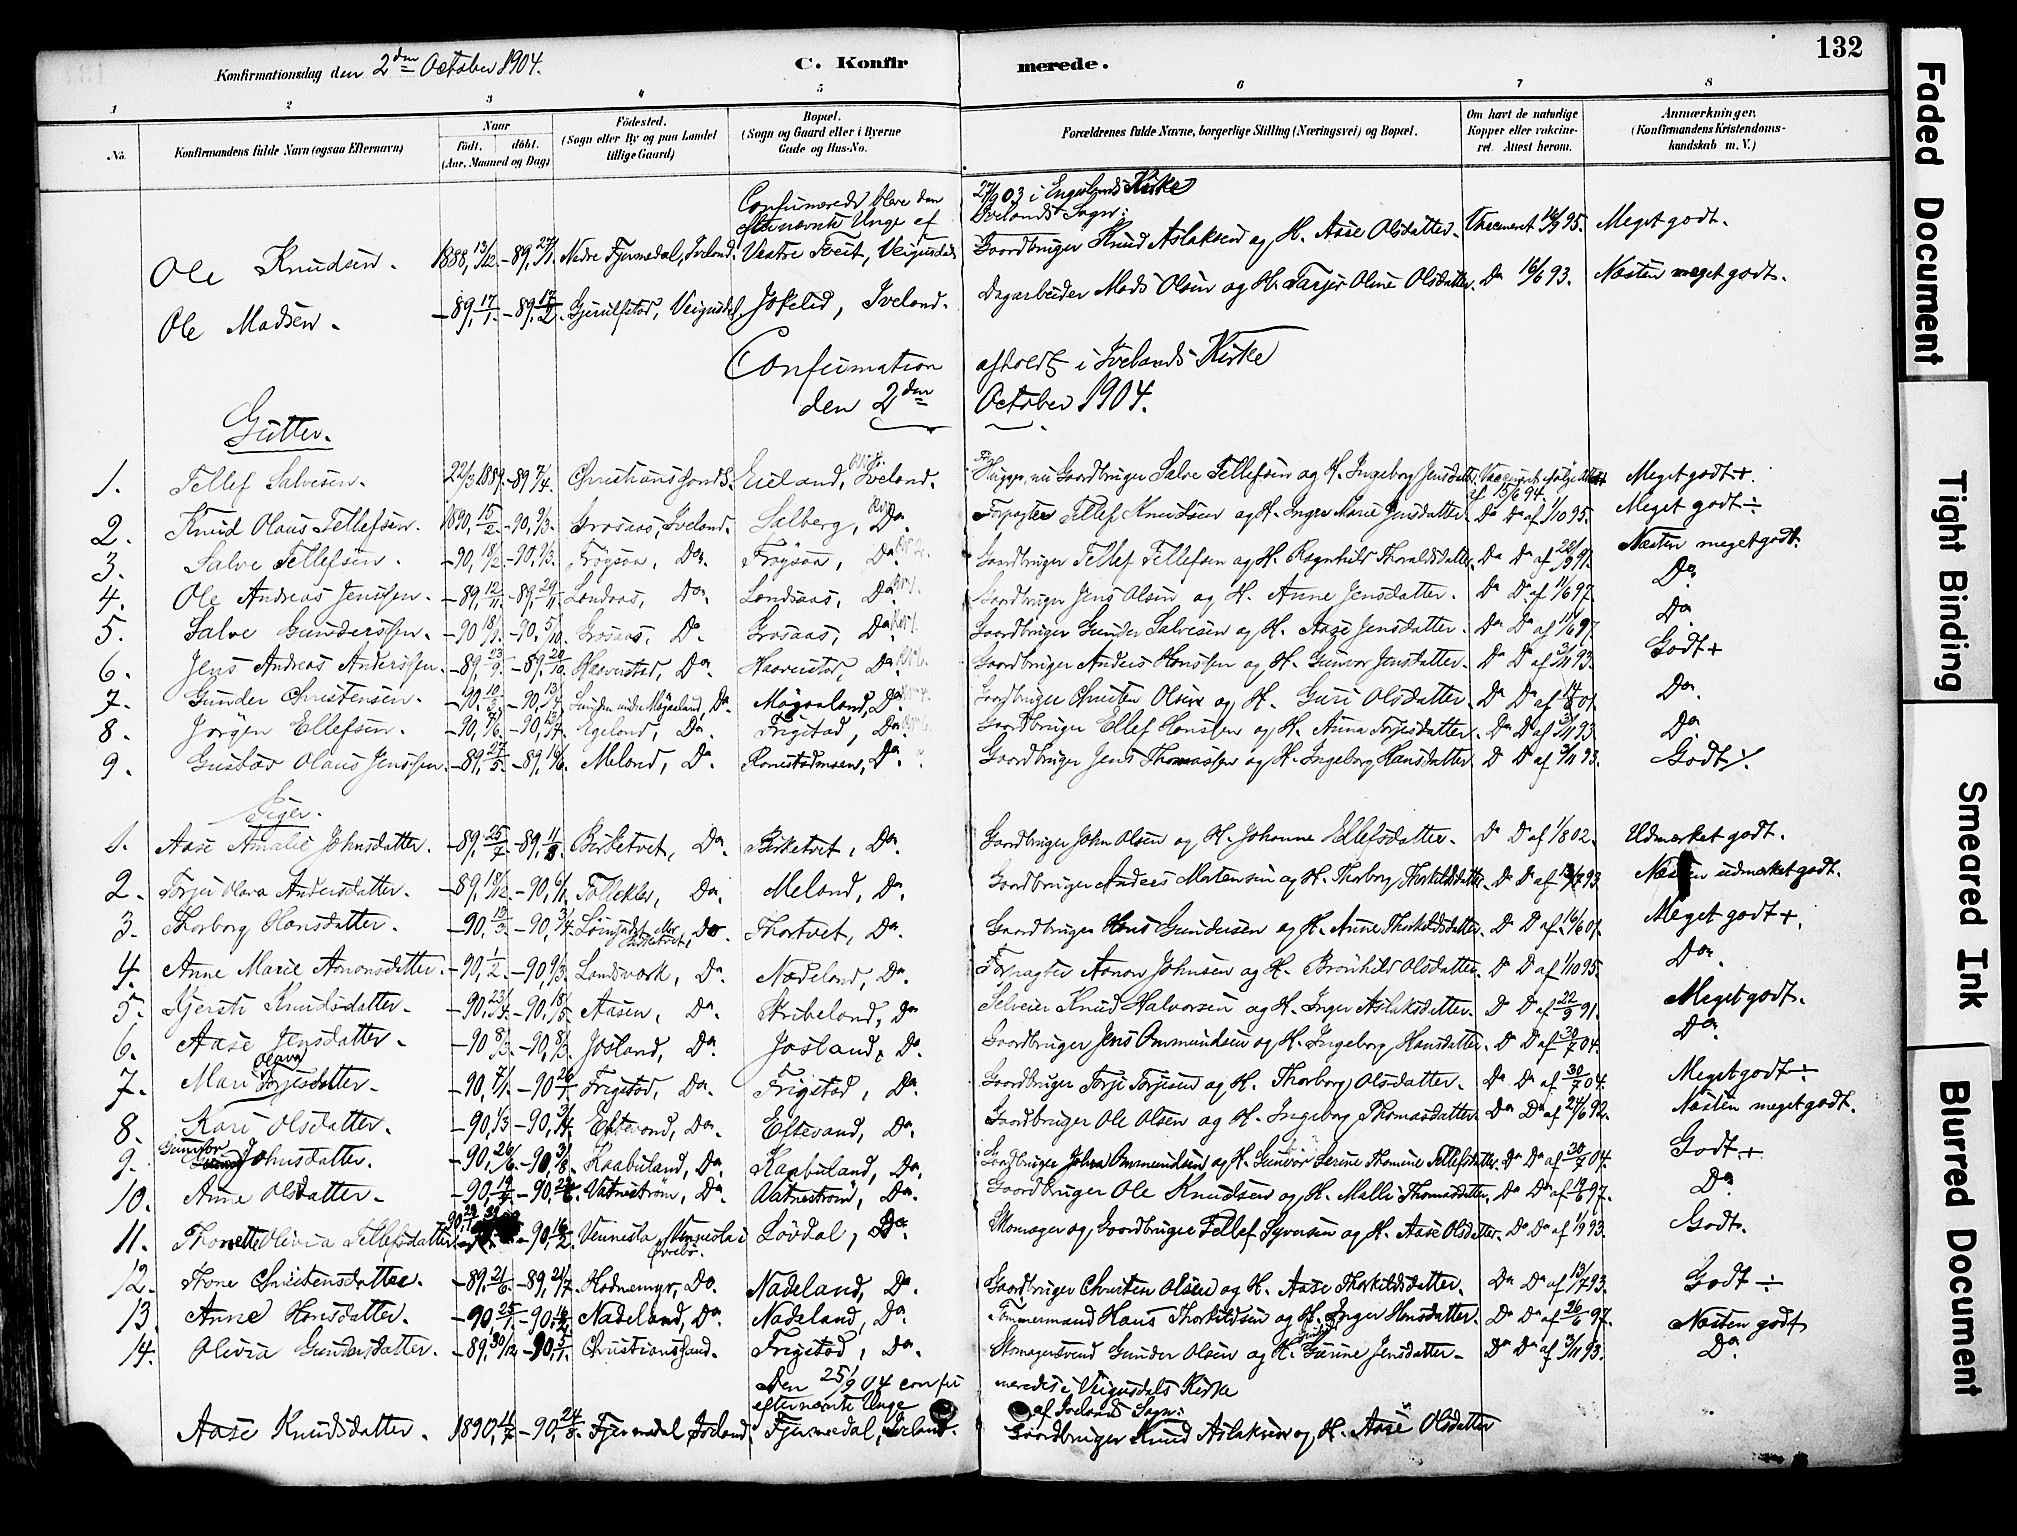 Konfirmationsdag den 2den October 1904.
C. Konfirmerede.
132
1 2 3 4 5 6 7 8
No.
Konfirmandens fulde Navn (ogsaa Efternavn)
Naar
født. døbt.
(Aar, Maaned og Dag)
Fødested.
(Sogn eller By og paa Landet
tillige Gaard)
Bopæl.
(Sogn og Gaard eller i Byerne
Gade og Hus-No.
Forældrenes fulde Navne, borgerlige Stilling (Næringsvei) og Bopæl.
Om havt de naturlige
Kopper eller vakcine-
ret. Attest herom.
Anmærkninger.
(Konfirmandens Kristendoms-
kundskab m. V.)
27/9 03 i Kirke
Ivelands Sogn:
Ole Knudsen. 1888, 13/12. Nedre Fjermedal, Iveland. Vestre Tveit, Gaardbruger Knud Aslaksen og H. Aase Olsdatter. Meget godt.
Ole Madsen. -89, 17/1. -89, 17/2. Jokelid, Iveland. Dagarbeider Mads Olsen og H. Tarjer Oline Olsdatter. Do 16/6 93. Næsten meget godt.
Confirmation afholdt i Ivelands Kirke
den 2den October 1904.
Gutter.
1. Tellef Salvesen. 22/3 1889. -89 7/4. Christianssand. Eieland, Iveland. nu Gaardbruger Salve Tellefsen og H. Ingeborg Jensdatter. Meget godt +.
af 15/6 94.
2. Knud Olaus Tellefsen. 1890, 15/2. -90, 9/3. Grosaas, Iveland. Salberg, Do. Forpagter Tellef Knudsen og H. Inger Marie Jensdatter. Do Do af 1/10 95. Meget godt ÷
3. Salve Tellefsen. -90, 18/2. -90, 9/3. Frøysaa, Do. Frøysaa, Do. Gaardbruger Tellef Tellefsen og H. Ragnhild Thoraldsdatter. Do Do af 22/9 91. Næsten meget godt.
4. Ole Andreas Jenssen. -89, 12/11. -89, 29/11. Landaas, Do. Landaas, Do. Gaardbruger Jens Olsen og H. Anne Jensdatter. Do Do af 11/6 97. Do.
5. Salve Gunderssen. -90 18/9. -90, 5/10. Grosaas, Do. Grosaas, Do. Gaardbruger Gunder Salvesen og H. Aase Jensdatter. Do Do af 11/6 97. Do
6. Jens Andreas Anderssen. -89, 23/9. -89, 20/10. Haavestad, Do. Haavestad, Do. Gaardbruger Anders Hanssen og H. Gunvor Jensdatter. Do Do af 3/11 93. Godt +
7. Gunder Christensen. Møgaaland, Do. Møgaaland, Do. Gaardbruger Christen Olsen og H. Guri Olsdatter. Do.
8. Jørgen Ellefsen. Ageland, Do. Frigstad, Do. Gaardbruger Ellef Hanssen og H. Anna Torjesdatter. Do Do af 3/11 93. Do.
9. Gustav Olaus Jenssen. -89, 27/5. -89, 16/6. Meland, Do. Gaardbruger Jens Thomassen og H. Ingeborg Hansdatter Do Do af 3/11 93. Godt %.
Piger.
1. Aase Amalie Johnsdatter. -89, 25/7. -89, 11/8. Birketvet, Do. Birketvet, Do. Gaardbruger John Olsen og H. Johanne Ellefsdatter. Do Do af 1/8 02. Udmærket godt.
2. Torjer Olava Andersdatter. -89, 18/12. -90, 6/1. Do. Meland, Do. Gaardbruger Anders Mortensen og H. Thorborg Thorkildsdatter. Do Do af 13/7 93. Næsten udmærket godt.
3. Thorborg Hansdatter. -90, 19/3. -90, 3/4. Do. Thortvet, Do. Gaardbruger Hans Gundersen og H. Anne Thorkildsdatter. Do Do af 16/6 01. Meget godt +.
4. Anne Marie Aanonsdatter. -90, 1/2. -90, 9/3. Landsverk, Do. Nædeland, Do. Forpagter Aanon Johnsen og H. Brønhild Olsdatter. Do Do af 1/10 95. Do.
5. Kjersti Knudsdatter. Aasen, Do. Skribeland, Do Selveier Knud Halvorsen og H. Inger Aslaksdatter. Do Do af 22/9 91. Meget godt.
6. Aase Jensdatter. Josland, Do. Josland, Do. Gaardbruger Jens Ommundsen og H. Ingeborg Hansdatter. Do Do af 30/7 04. Do.
7. Mari Olava Torjesdatter. -90, 7/1. -90 26/1. Frigstad, Do. Frigstad, Do. Gaardbruger Torje Torjesen og H. Thorborg Olsdatter. Do Do af 30/7 04. Meget godt ÷
8. Kari Olsdatter. -90, 1/3. -90, 3/4. Eftevand, Do. Eftevand, Do. Gaardbruger Ole Olsen og H. Ingeborg Thomasdatter. Do Do af 24/6 92. Næsten meget godt.
9. Gunvor Johnsdatter. Kaabuland, Do. Kaabuland, Do. Gaardbruger John Ommundsen og H. Gunvor Serine Thomine Tellefsdatter. Do Do af 30/7 04. Godt +
10. Anne Olsdatter. Vatnestrøm, Do. Vatnestrøm, Do. Gaardbruger Ole Knudsen og H. Malli Thomasdatter. Do Do Do.
11. Thonette Olivia Tellefsdatter -90, 16/2. Vennesla Løvdal, Do. Skomager og Gaardbruger Tellef Syversen og H. Aase Olsdatter. Do Do af 1/9 93. Godt.
Øvrebø.
12. Tone Christensdatter. -89, 21/6. -89, 21/7. Hodnemyr, Do. Nadeland, Do. Gaardbruger Christen Olsen og H. Aase Thorkildsdatter. Do Do af 13/7 93. Godt ÷
13. Anne Hansdatter. Nadeland, Do. Nadeland, Do. Tømmermand Hans Thorkildsen og H. Inger Hansdatter. Do Do af 26/6 97. Næsten godt
14. Olivia Gundersdatter. -89, 30/12. Christianssand. Frigstad, Do. Skomagersvend Gunder Olsen og H. Gurine Jensdatter. Do Do af 3/11 93. Do.
Den 25/9 04 confirmeredes i Veigusdals Kirke
efternævnte Unge af Ivelands Sogn:
Aase Knudsdatter. Fjermedal, Iveland. Fjermedal, Iveland. Gaardbruger Knud Aslaksen og H. Aase Olsdatter
Faded Document
Tight Binding
Smeared Ink
Blurred Document